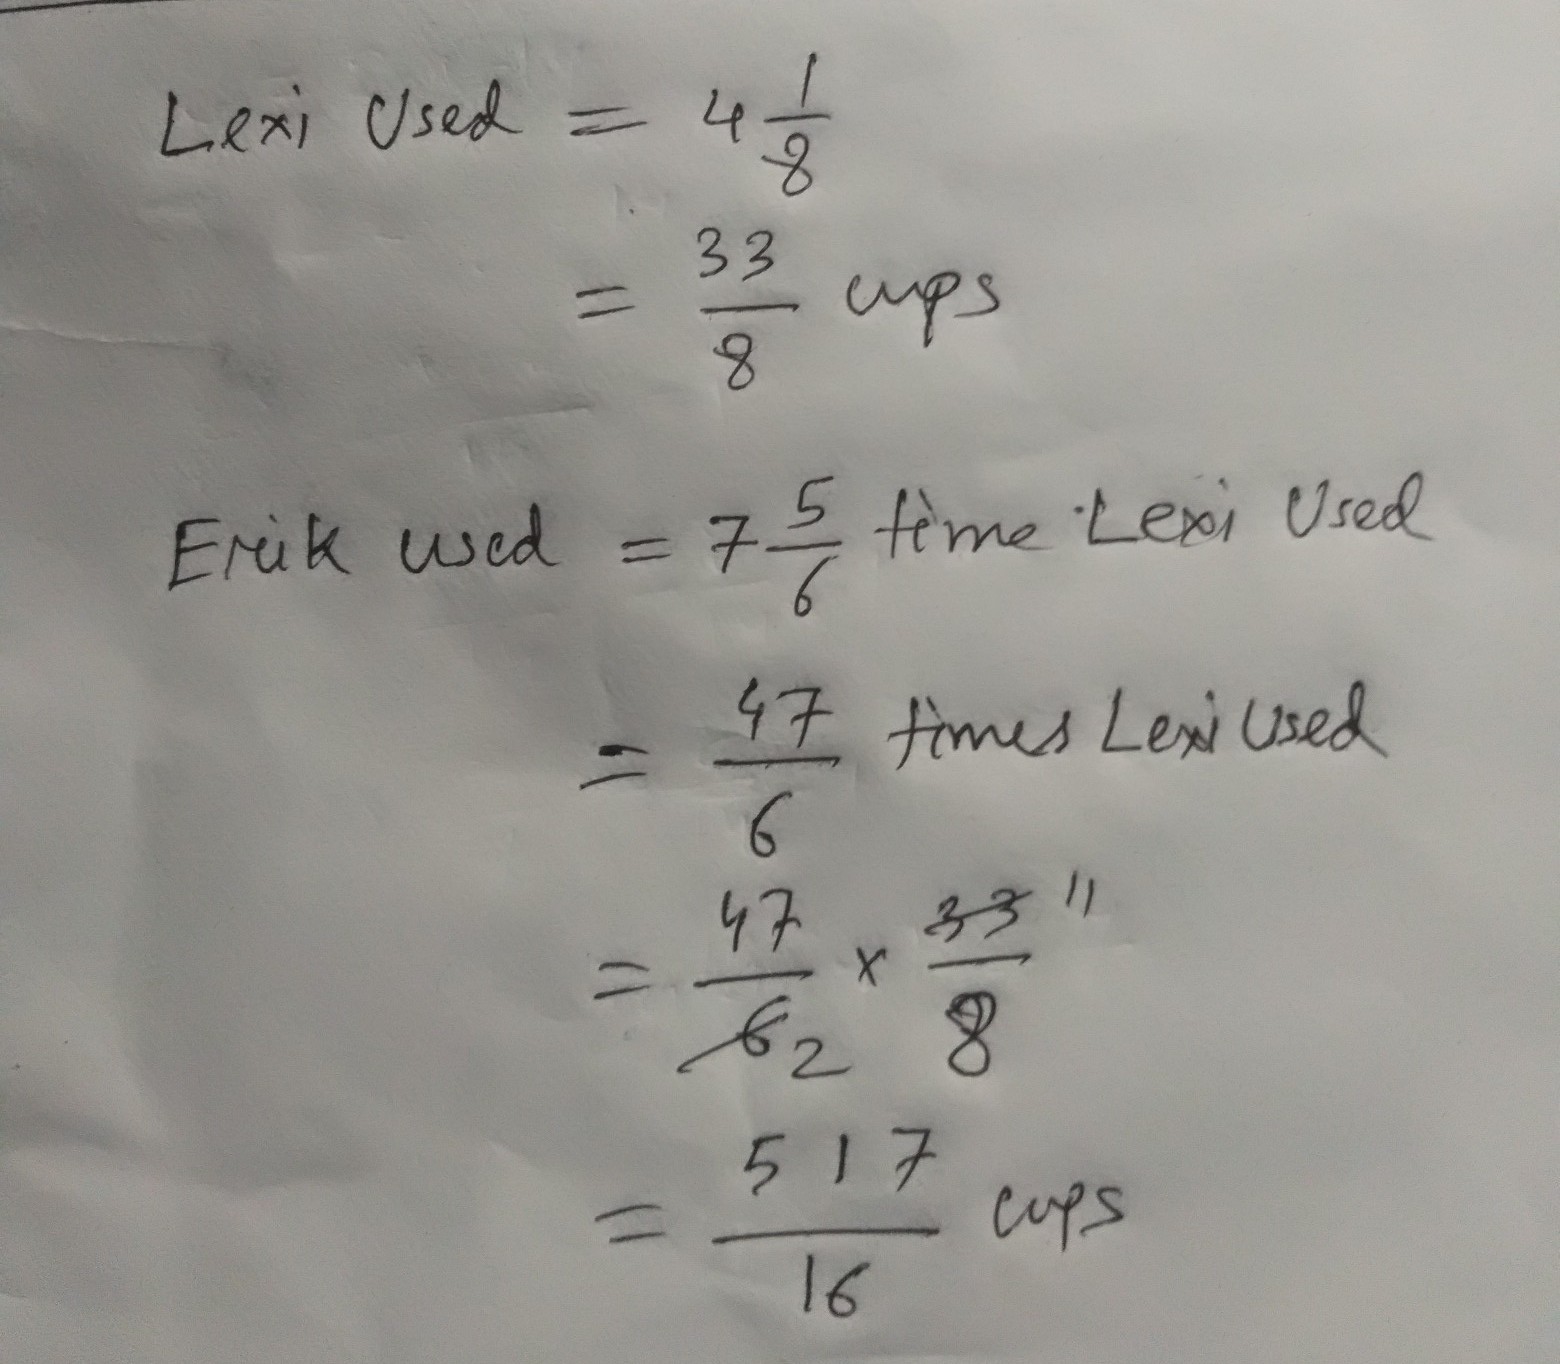 Lexi Used = 4 1/8
= 33/8 cups
Erik used = 7 5/6 time Lexi Used
= 47/6 times Lexi Used
= 47/6 2 × 33/8 11
= 517/16 cups